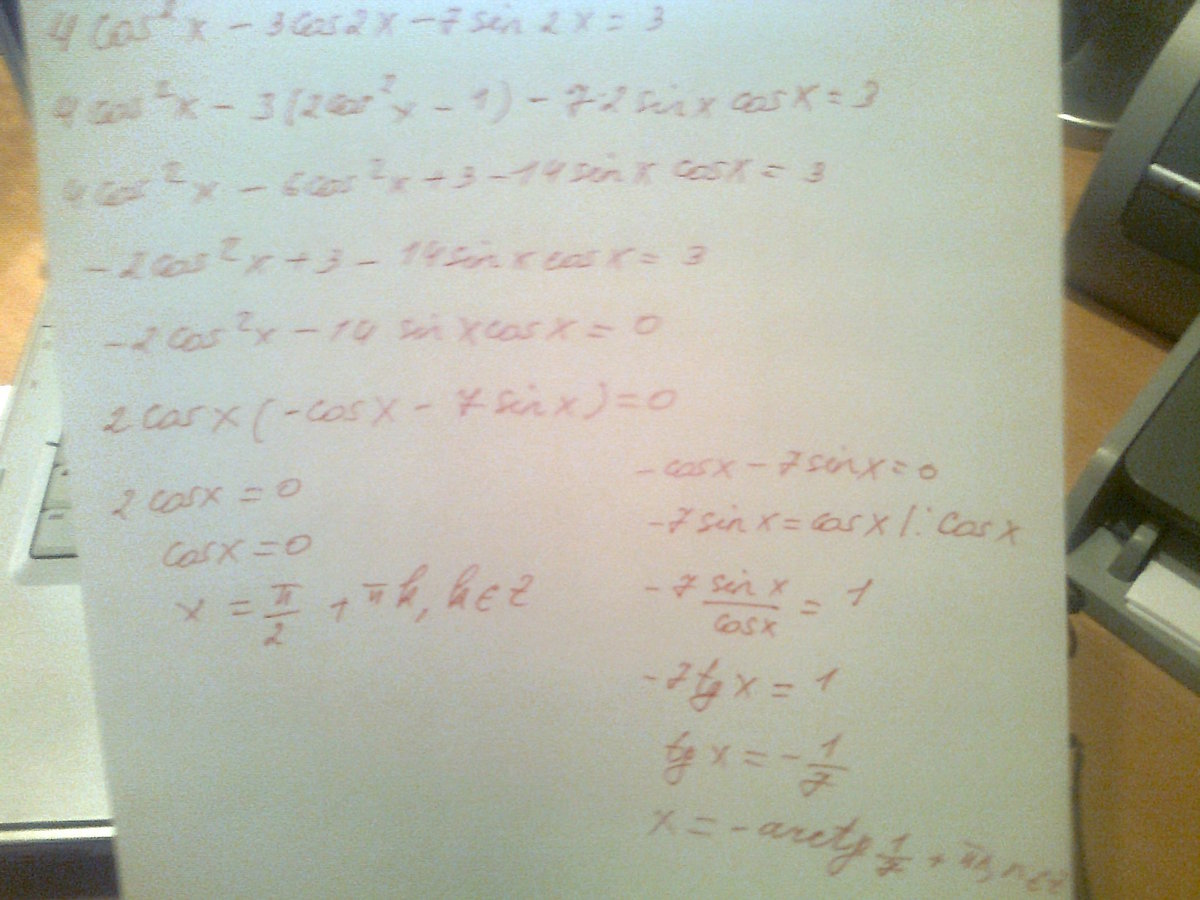 4 cos²x - 3cos2x - 7 sin 2x = 3
4 cos²x - 3(2cos²x - 1) - 7·2 sinx cosx = 3
4 cos²x - 6cos²x + 3 - 14 sinx cosx = 3
-2cos²x + 3 - 14 sinx cosx = 3
-2cos²x - 14 sinx cosx = 0
2 cosx (-cosx - 7 sinx) = 0
2 cosx = 0
cosx = 0
x = π/2 + πk, k∈Z
-cosx - 7sinx = 0
-7 sinx = cosx |: cosx
-7 sinx/cosx = 1
-7tg x = 1
tg x = -1/7
x = -arctg 1/7 + πn, n∈Z